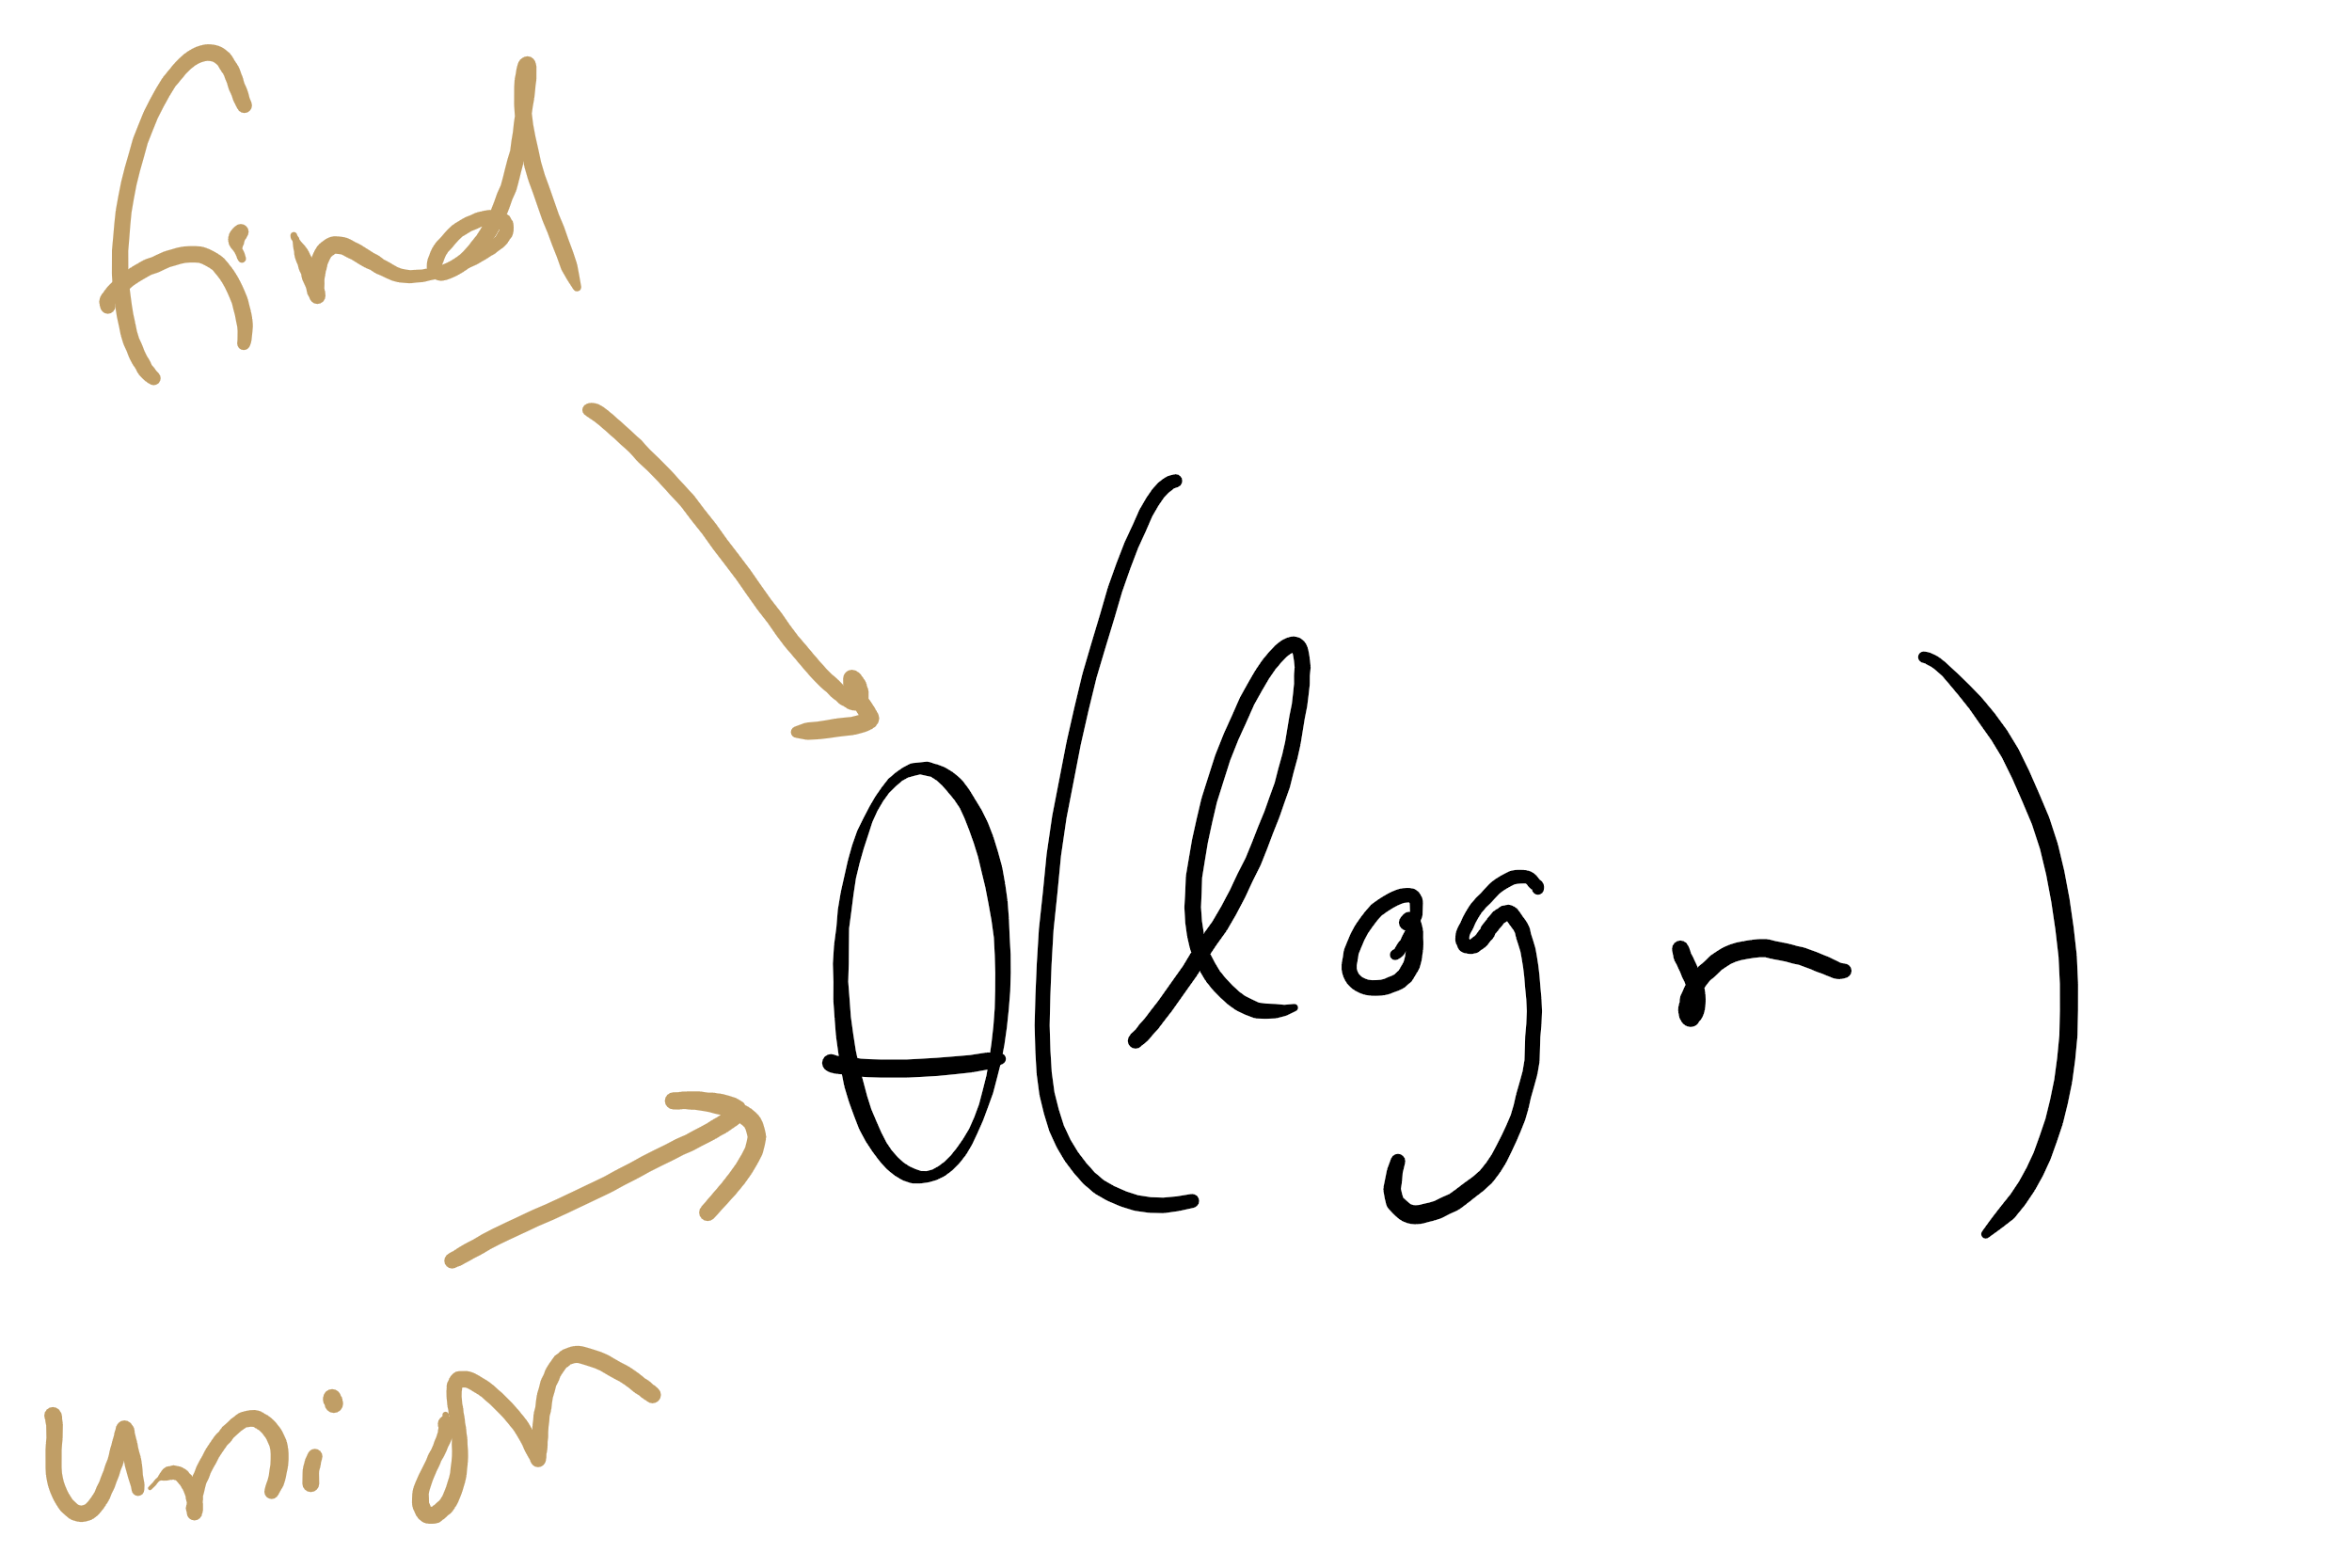 find
Θ(log n)
union